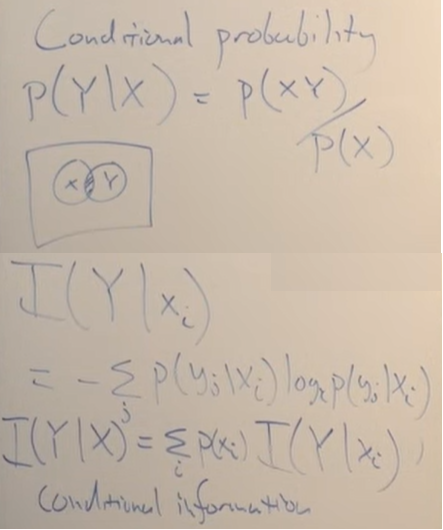 Conditional probability
P(Y|X) = P(XY)/P(X)
X Y
I(Y|xᵢ)
= -∑ⱼ P(yⱼ|xᵢ) log₂ P(yⱼ|xᵢ)
I(Y|X) = ∑ᵢ P(xᵢ) I(Y|xᵢ)
Conditional information